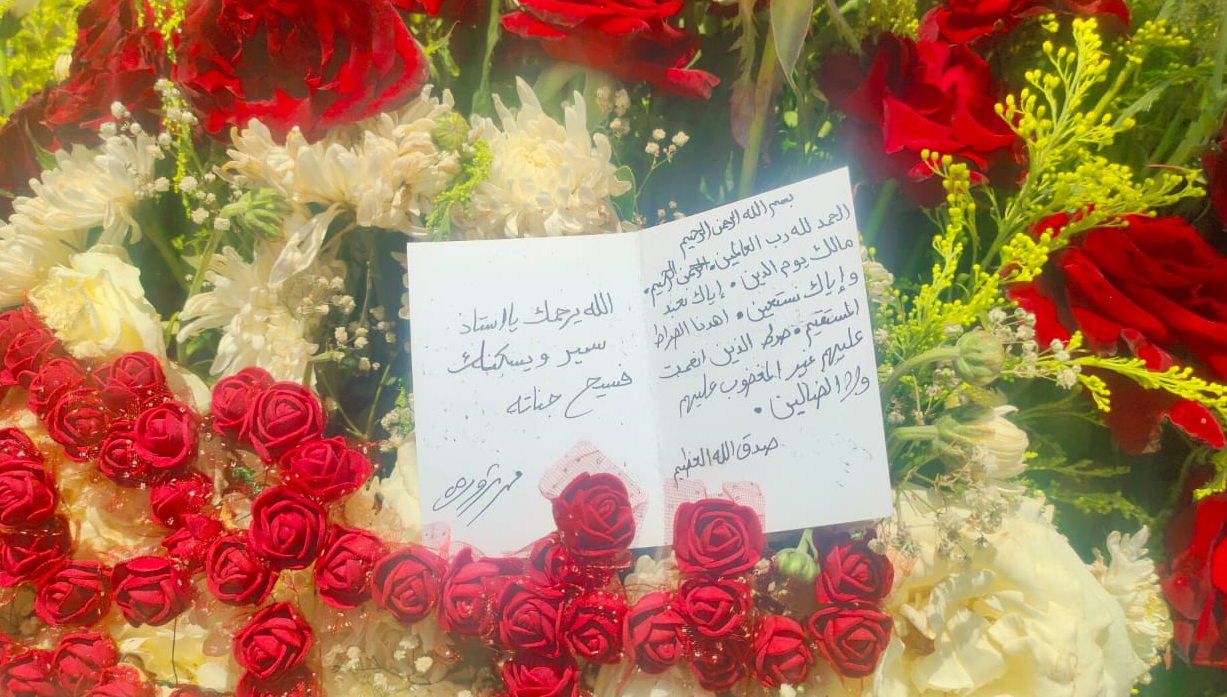 بسم الله الرحمن الرحيم
الحمد لله رب العالمين • الرحمن الرحيم •
مالك يوم الدين • إياك نعبد
وإياك نستعين • اهدنا الصراط
المستقيم • صرط الذين انعمت
عليهم غير المغضوب عليهم
ولا الضالين •
صدق الله العظيم
الله يرحمك يا استاذ
سمير ويسكنك
فسيح جناته